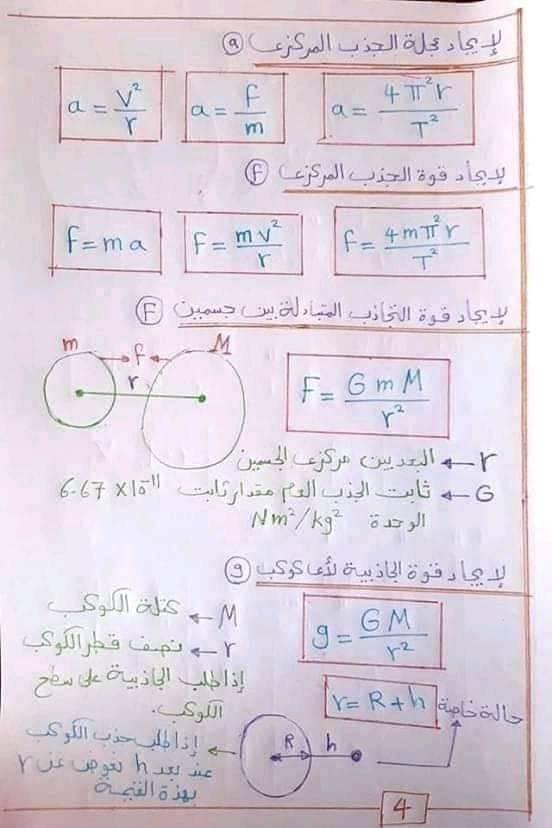 لإيجاد عجلة الجذب المركزي (a)
a = V²/r   a = F/m   a = 4π²r/T²
لإيجاد قوة الجذب المركزي (F)
F = ma   F = mv²/r   F = 4mπ²r/T²
لإيجاد قوة التجاذب المتبادلة بين جسمين (F)
m → F ← M
r
F = GmM/r²
r ← البعد بين مركزي الجسمين
G ← ثابت الجذب العام مقدار ثابت 6.67 × 10⁻¹¹
الوحدة Nm²/kg²
لإيجاد قوة الجاذبية لأي كوكب (g)
g = GM/r²
M ← كتلة الكوكب
r ← نصف قطر الكوكب
إذا طلب الجاذبية على سطح
الكوكب.
حالة خاصة r = R + h
R h
إذا طلب جذب الكوكب
عند بعد h نعوض عن r
بهذة القيمة
4